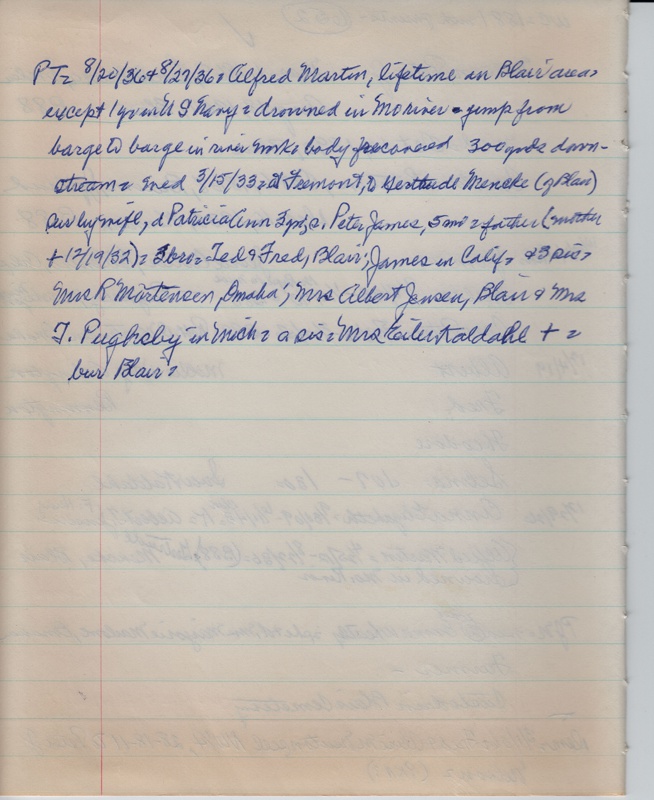 PT= 8/20/36 + 8/27/36 = Alfred Martin, lifetime in Blair area =
except 1 yr in U S Navy = drowned in Mo river = jump from
barge to barge in river body recovered 300 yds down-
stream = 3/15/33 = at Fremont, to Gertrude Mencke (of Blair)
sur by wife, d Patricia Ann 3 yrs, s. Peter James, 5 mo = father (mother
+ 12/19/32) = 3 bro = Ted & Fred, Blair; James in Calif = & 3 sis =
Mrs R Mortensen, Omaha; Mrs Albert Jensen, Blair & Mrs
T. Pugksby in Mich = a sis = Mrs Eiler Kaldahl + =
bur Blair =